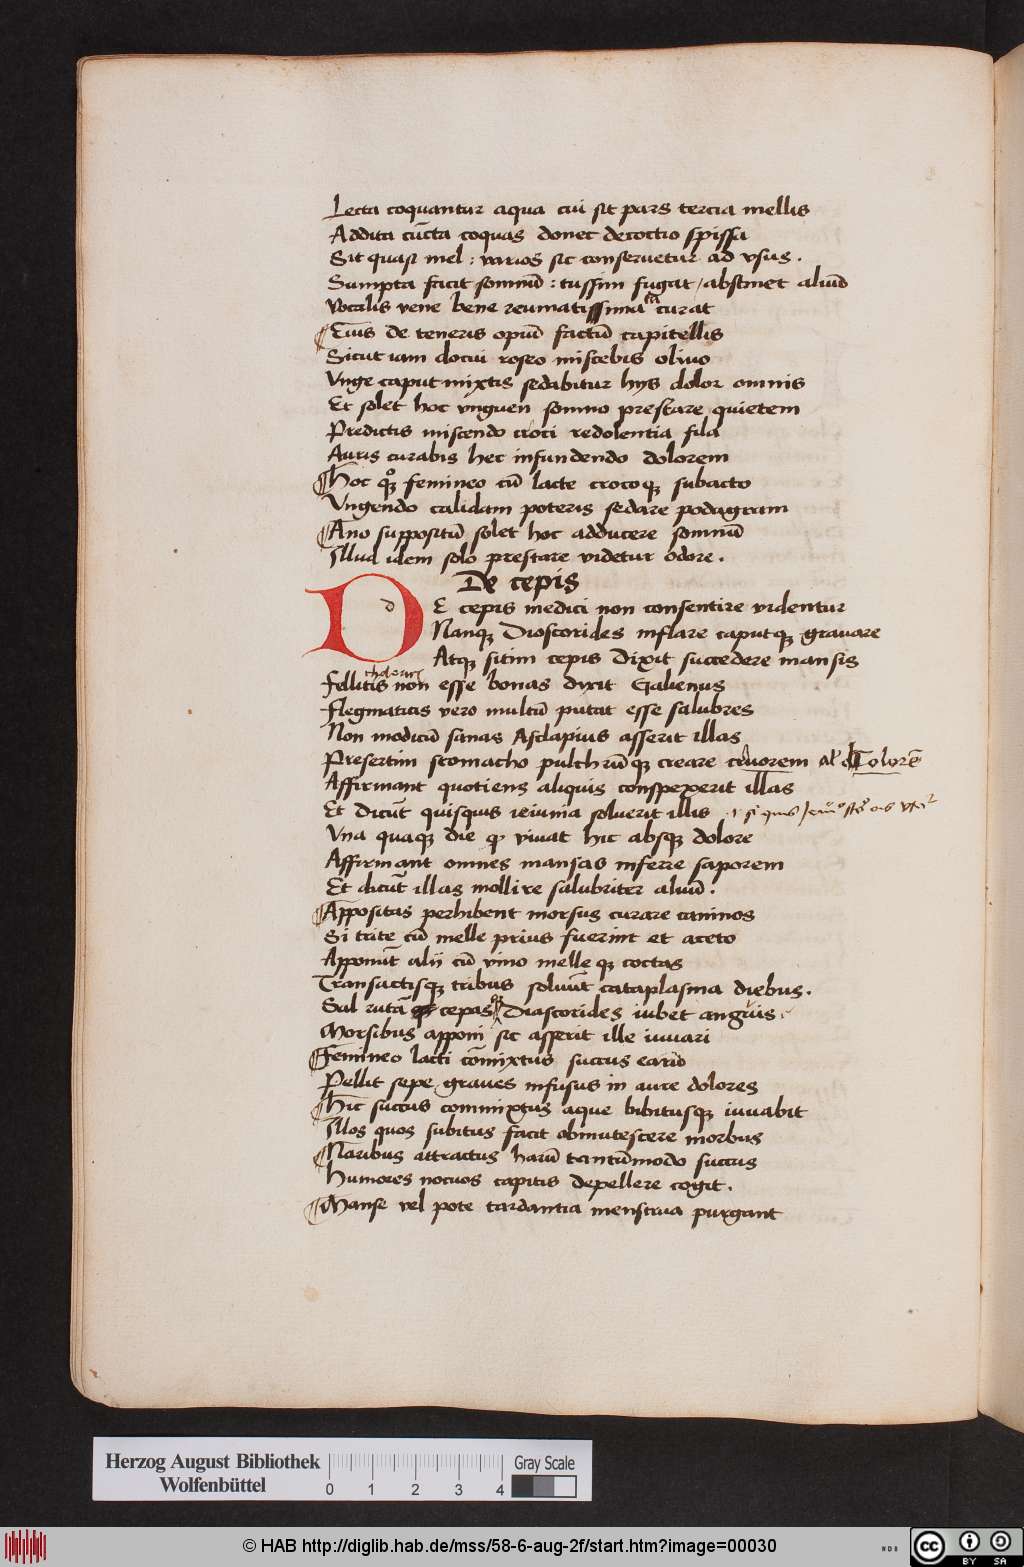 Lecta coquantur aqua cui sit pars tercia mellis
Addita cūcta coquas donec decoctio spissa
Sit quasi mel : varios sic conseruetur ad vsus .
Sumpta facit somnū : tussim fugat / abstinet aluū
Vocalis vene bene reumatissima curat
¶ Eius de teneris opiū factū capitellis
Sicut iam docui roseo miscebis oliuo
Vnge caput mixtis sedabitur hijs dolor omnis
Et solet hoc vnguen somno prestare quietem
Predictis miscendo croci redolentia fila
Auris curabis hec infundendo dolorem
¶ Hoc qꝫ femineo cū lacte crocoqꝫ subacto
Vngendo calidam poteris sedare podagram
¶ Ano suppositū solet hoc adducere somnū
Illud idem solo prestare videtur odore .
De cepis
DE cepis medici non consentire videntur
Nanqꝫ Dioscorides inflare caputqꝫ grauare
Atqꝫ sitim cepis dixit succedere mansis
Fellitis non esse bonas dixit Galienus
Flegmaticis vero multū putat esse salubres
Non modicū sanas Asclapius asserit illas
Presertim stomacho pulchrūqꝫ creare cruorem al' Colorē
Affirmant quotiens aliquis conspexerit illas
Et dicūt quisquis ieiunia soluerit illis
Vna quaqꝫ die qꝫ viuat hic absqꝫ dolore
Affirmant omnes mansas inferre saporem
Et dicūt illas mollire salubriter aluū .
¶ Appositas perhibent morsus curare caninos
Si trite cū melle prius fuerint et aceto
Apponūt alii cū vino melle qꝫ coctas
Transactisqꝫ tribus soluūt cataplasma diebus .
Sal rutā cepasqꝫ Diascorides iubet anguis
Morsibus apponi sic asserit ille iuuari
¶ Femineo lacti cōmixtus succus earū
Pellit sepe graues infusus in aure dolores
¶ Hic succus commixtus aque bibitusqꝫ iuuabit
Illos quos subitus facit obmutescere morbus
¶ Naribus attractus harū tantūmodo succus
Humores nocuos capitis depellere cogit .
¶ Manse vel pote tardantia menstrua purgant
Herzog August Bibliothek
Wolfenbüttel
0 1 2 3 4
Gray Scale
© HAB http://diglib.hab.de/mss/58-6-aug-2f/start.htm?image=00030
cc BY SA